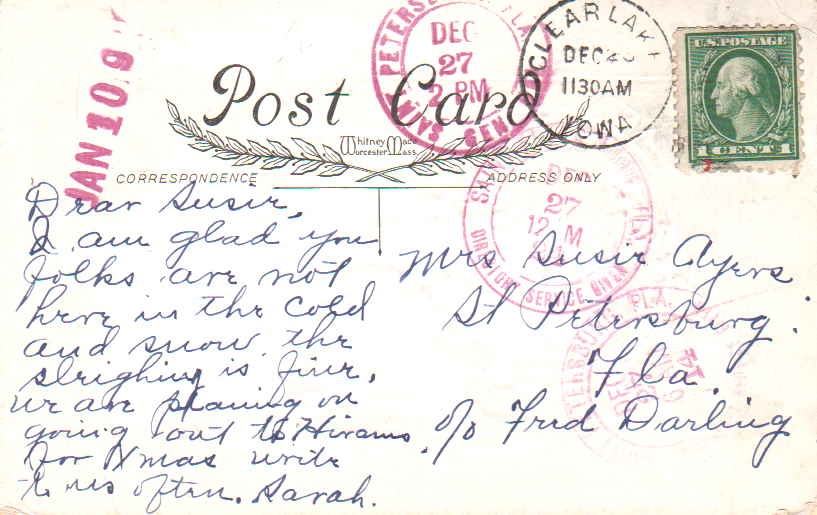 JAN 10 9
ST. PETERSBURG, FLA.
DEC
27
2 PM
GEN
CLEAR LAKE
DEC
1130AM
IOWA
U.S. POSTAGE
1 CENT 1
Post Card
Whitney Made
Worcester Mass.
CORRESPONDENCE
ADDRESS ONLY
27
12 M
DIRECTORY SERVICE GIVEN
FLA.
14
Dear Susie,
I am glad you
folks are not
here in the cold
and snow, the
sleighing is fine,
we are planing on
going out to Hirams
for Xmas write
to us often. Sarah.
Mrs Susie Ayers
St Petersburg.
Fla.
c/o Fred Darling